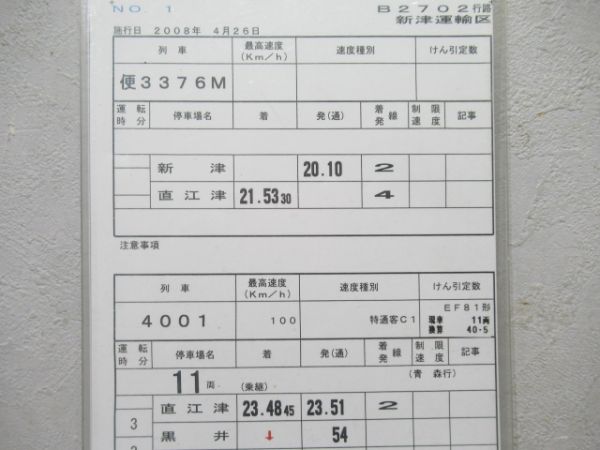 NO. 1 B2702行路
新津運輸区
施行日 2008年 4月26日
列車 最高速度(Km/h) 速度種別 けん引定数
便3376M
運転時分 停車場名 着 発(通) 着発線 制限速度 記事
新津 20.10 2
直江津 21.53 30 4
注意事項
列車 最高速度(Km/h) 速度種別 けん引定数
4001 100 特通客C1 EF81形
現車 11両
換算 40.5
運転時分 停車場名 着 発(通) 着発線 制限速度 記事
11両 (乗継) (青森行)
直江津 23.48 45 23.51 2
3
黒井 ↓ 54